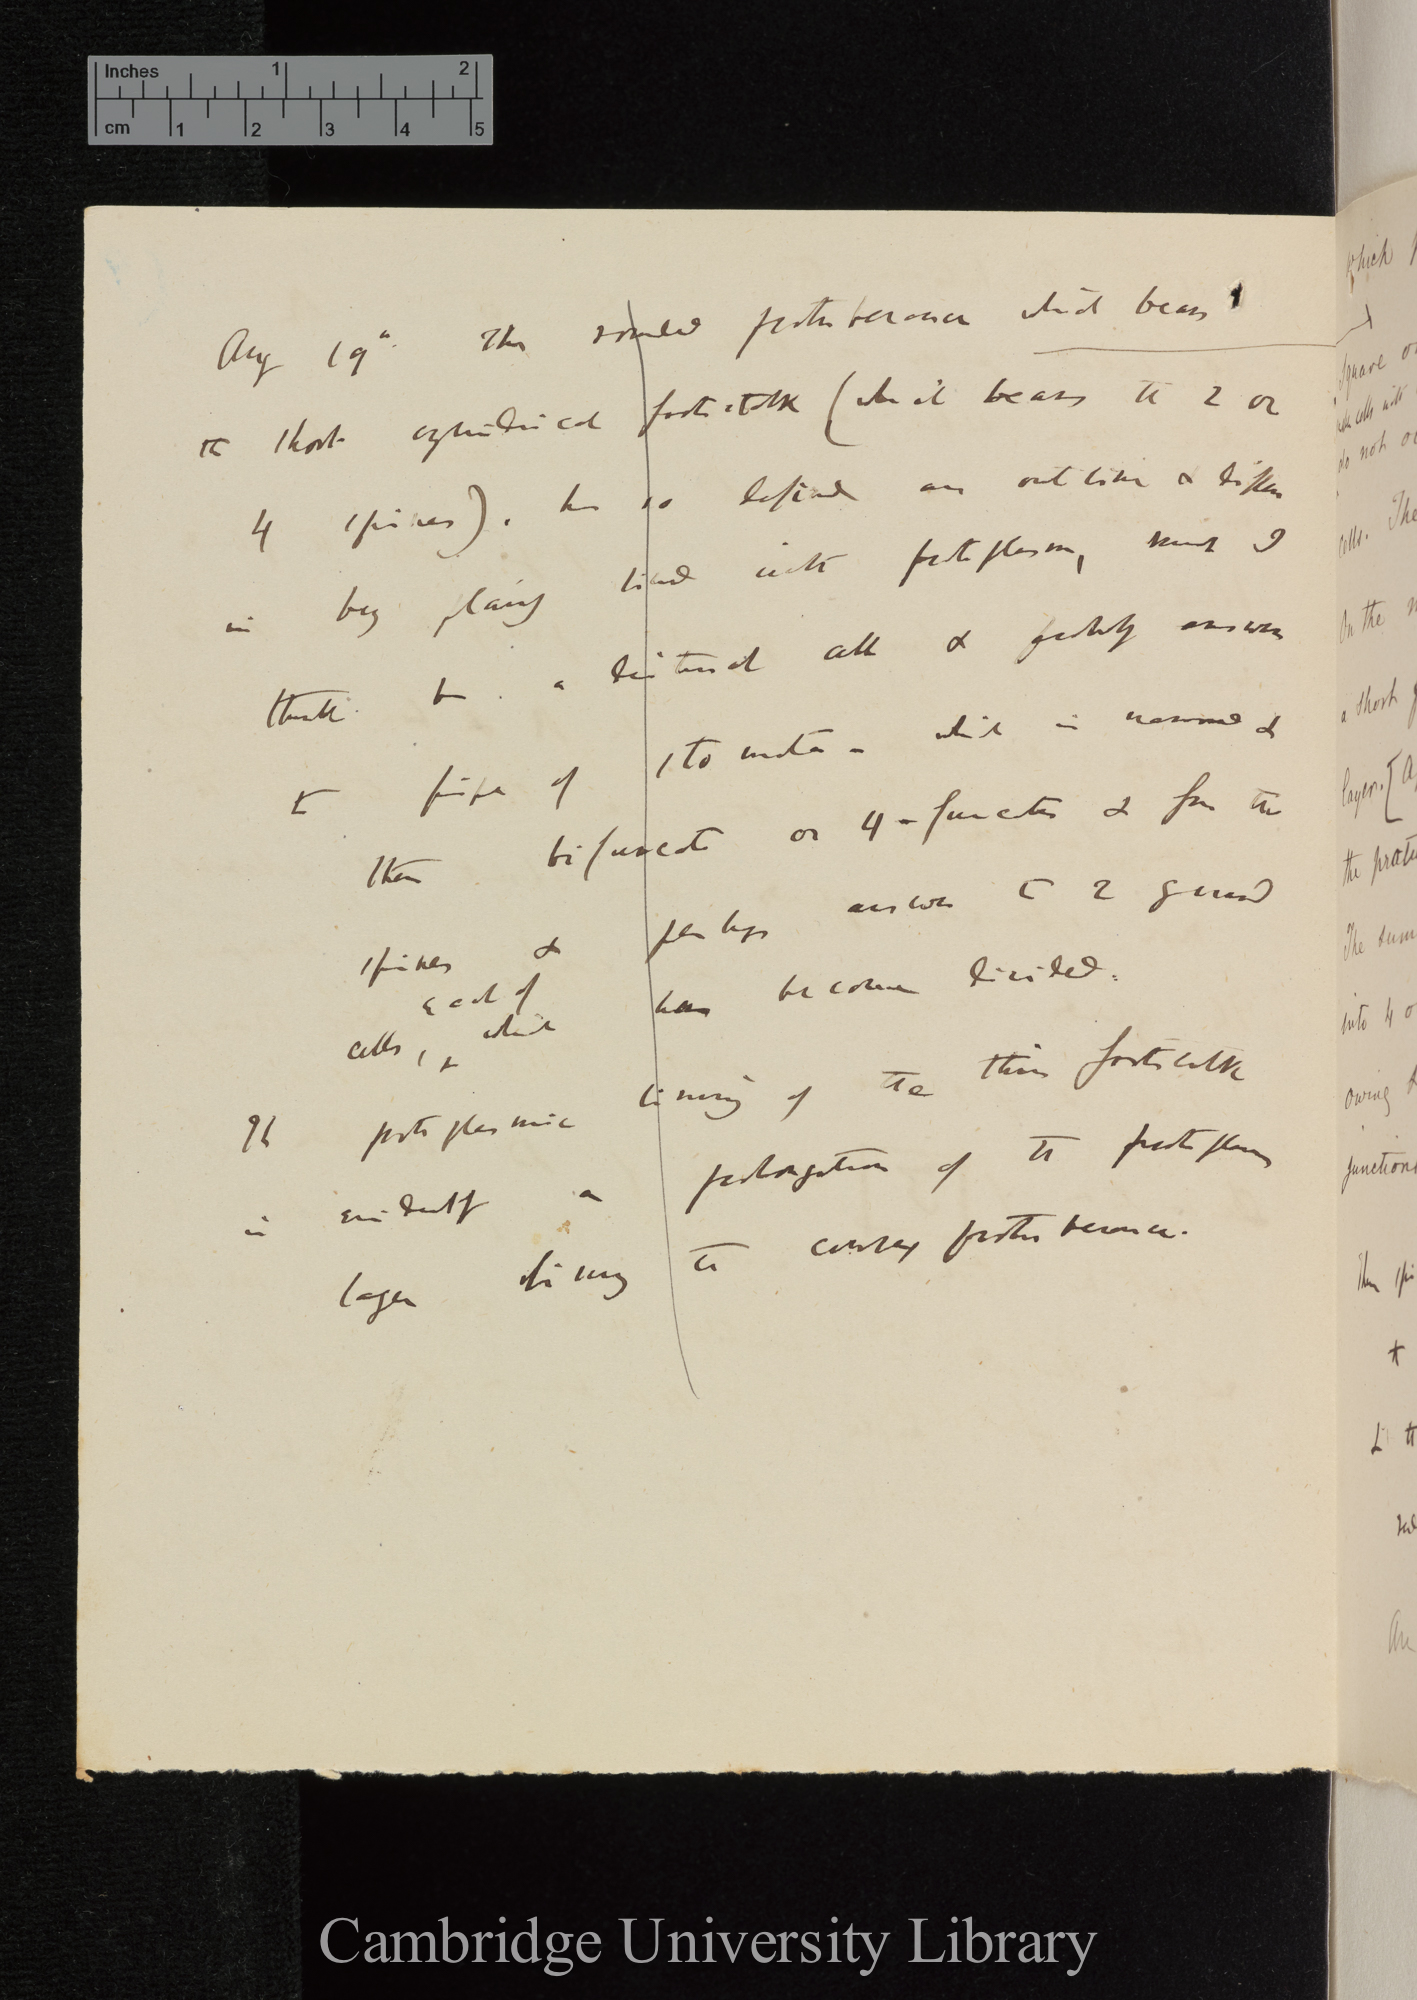 Inches 1 2
cm 1 2 3 4 5
Aug 19th The rounded protuberance which bears
the short cylindrical footstalk (which bears the 2 or
4 spines), has so defined an outline & differs
in being plainly lined with protoplasm, must I
think be a distinct cell & probably answers
to of stomata – which is &
then bifurcates or 4-furcates & forms the
spines & perhaps answers to 2 guard
each of
cells, which has become divided.
The protoplasmic lining of the thin footstalk
is evidently a prolongation of the protoplasmic
layer lining the convex protuberance.
which
Square
do not
cells. The
On the
a short
layer. [
the
The
into 4
owing
junction
Cambridge University Library